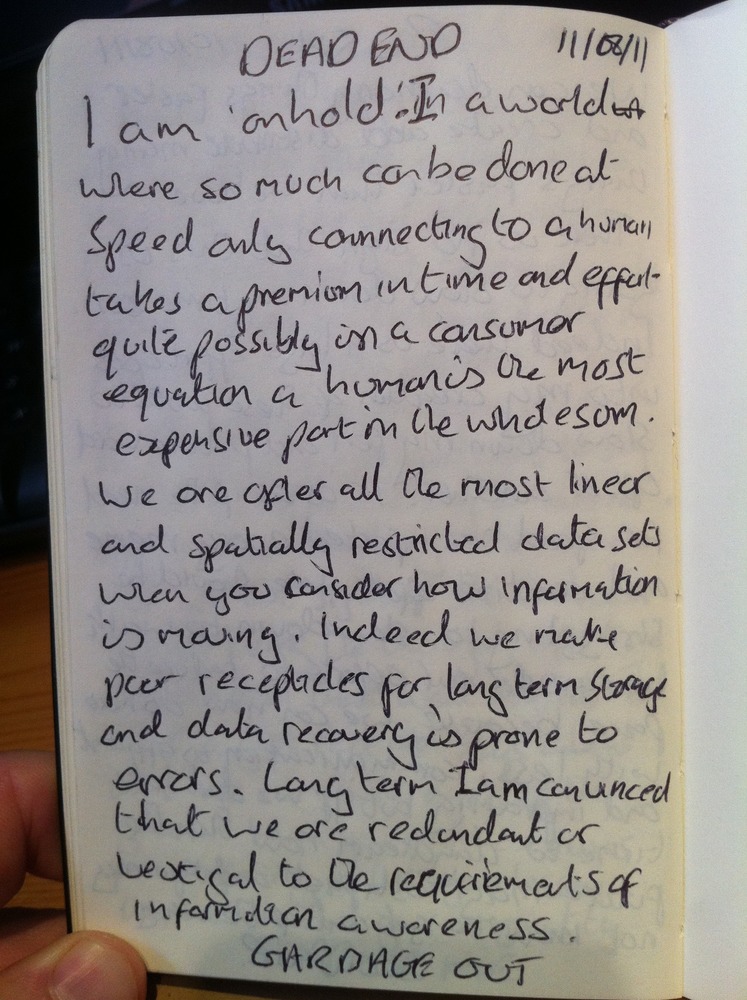 DEAD END 11/08/11
I am 'onhold'. In a world
where so much can be done at
speed only connecting to a human
takes a premium in time and effort
quite possibly in a consumer
equation a human is the most
expensive part in the whole sum.
We are after all the most linear
and spatially restricted data sets
when you consider how information
is moving. Indeed we make
poor receptacles for long term storage
and data recovery is prone to
errors. Long term I am convinced
that we are redundant or
vestigal to the requirements of
information awareness.
GARBAGE OUT